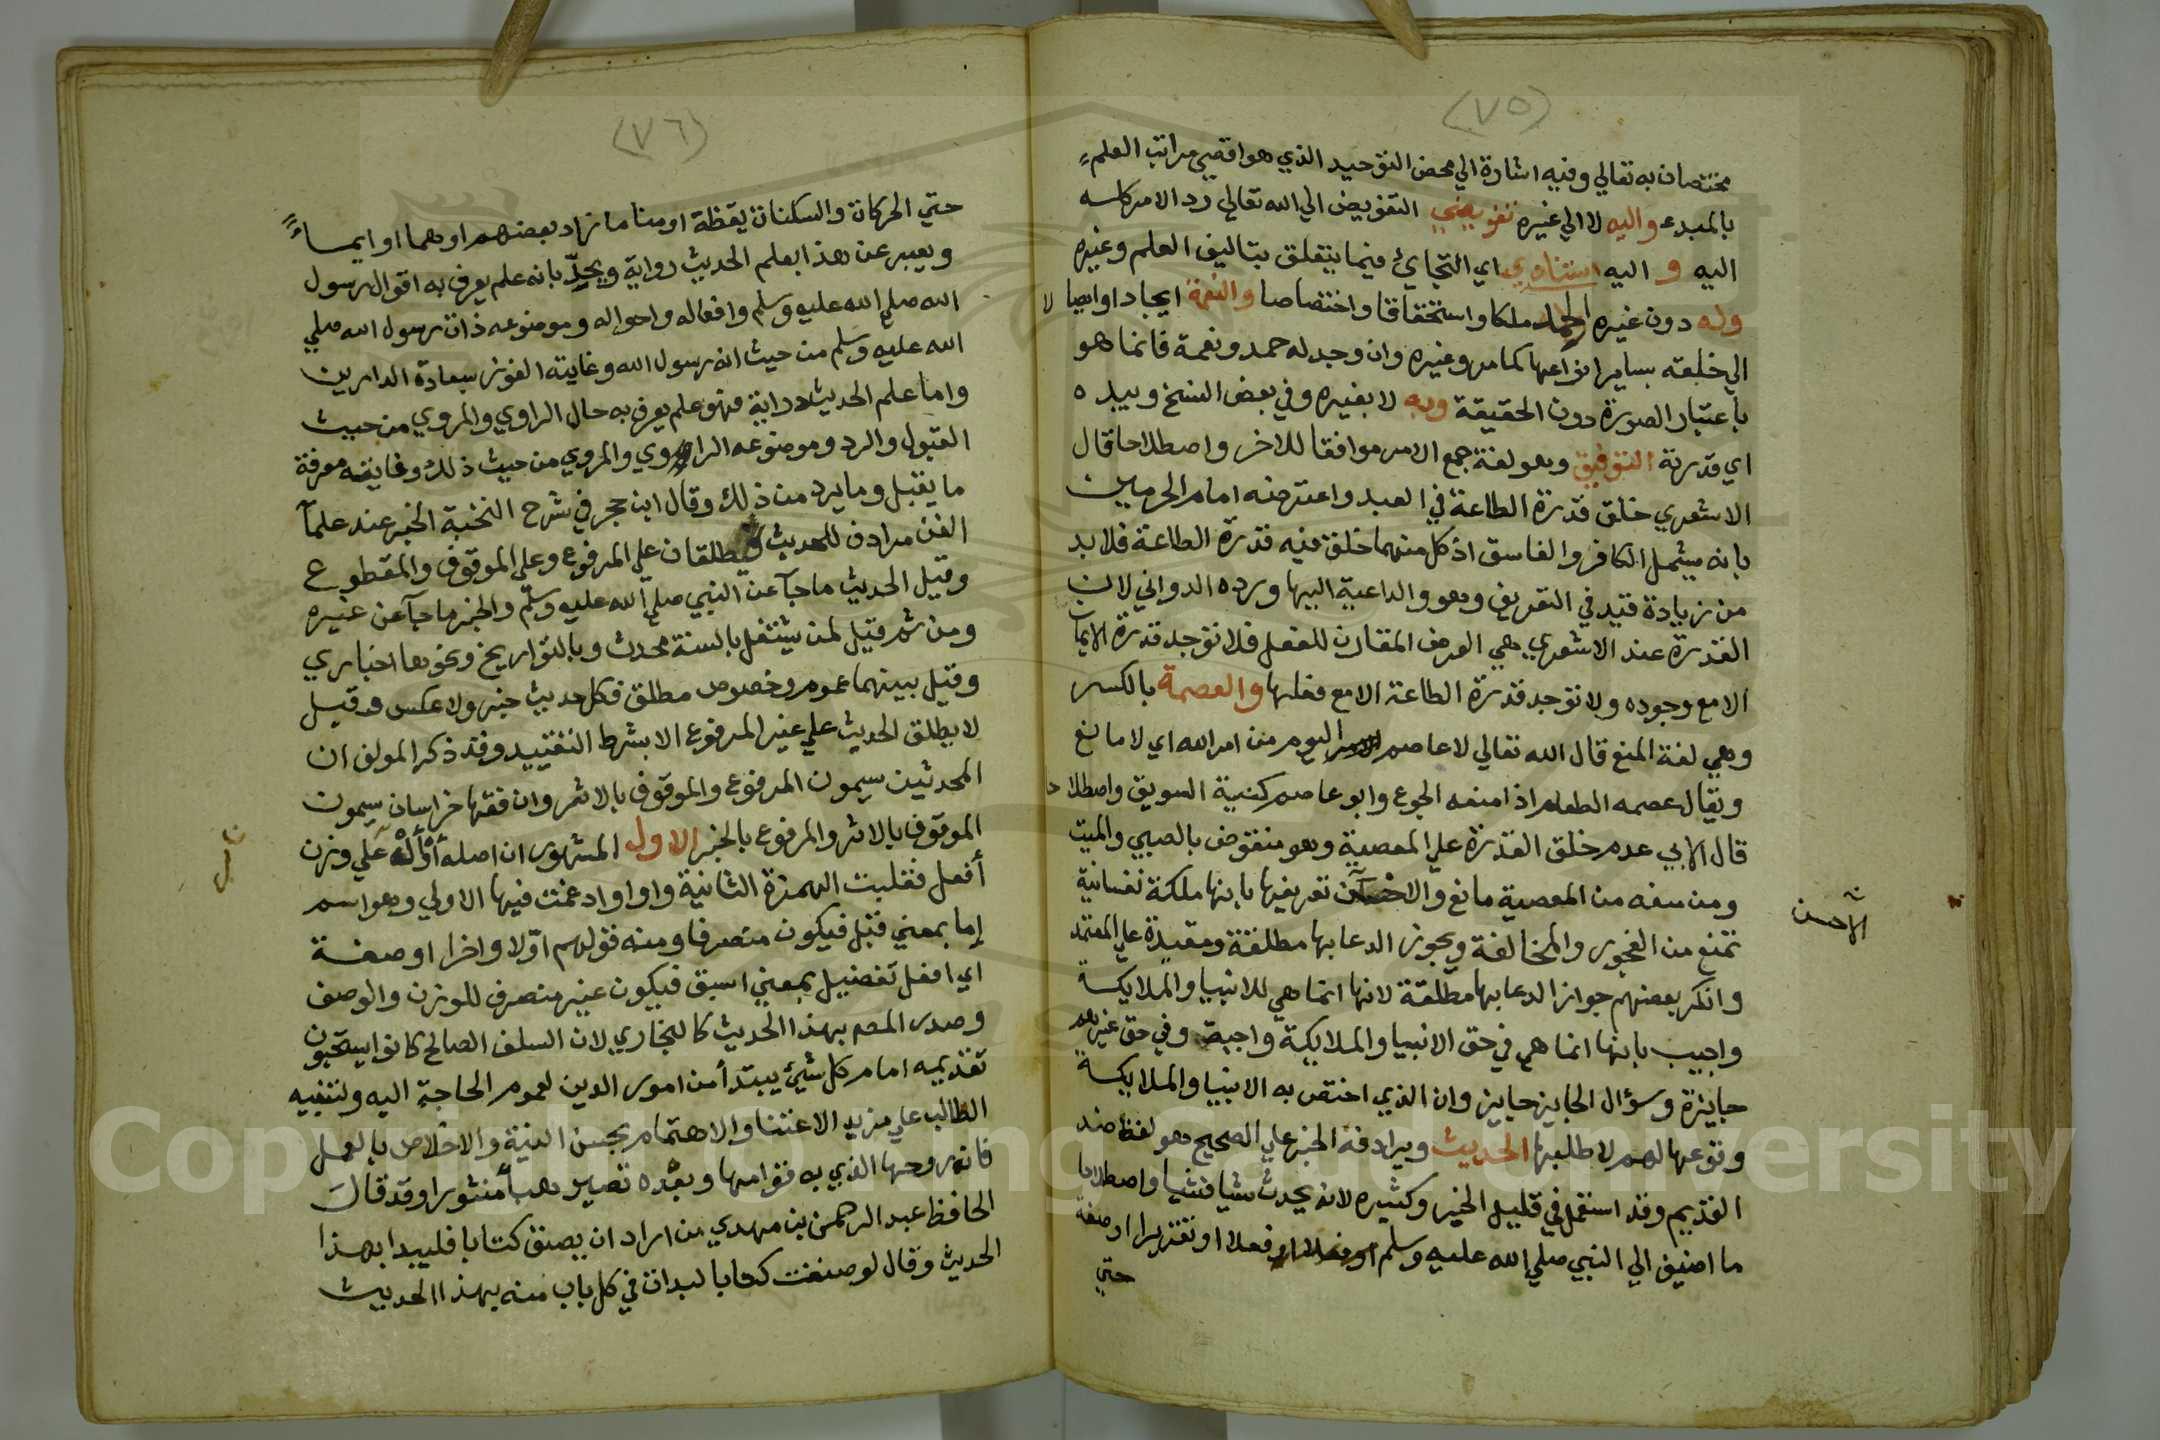 (٧٥)
مختصان به تعالي وفيه اشارة الي محض التوحيد الذي هو اقصي مراتب العلم
بالمبدء واليه لا الي غيره تفويضي التفويض الي الله تعالي رد الامر كله
اليه و اليه استنادي اي التجاءي فيما يتعلق بتاليف العلم وغيره
وله دون غيره الحمد ملكا واستحقاقا واختصاصا والنعمة ايجادا وايصا لا
الي خلقه بساير انواعها كما مر وغيره وان وجد له حمد ونعمة فانما هو
باعتبار الصورة دون الحقيقة وبه لا بغيره وفي بعض النسخ وبيده
اي قدرته التوفيق وهو لغة جمع الامر موافقا للاخر واصطلاحا قال
الاشعري خلق قدرة الطاعة في العبد واعترضه امام الحرمين
بانه يشمل الكافر والفاسق اذ كل منهما خلق فيه قدرة الطاعة فلا بد
من زيادة قيد في التعريف وهو والداعية اليها ورده الدواني لان
القدرة عند الاشعري هي العرض المقارن للفعل فلا توجد قدرة الايمان
الا مع وجوده ولا توجد قدرة الطاعة الا مع فعلها والعصمة بالكسر
وهي لغة المنع قال الله تعالي لا عاصم اليوم من امر الله اي لا مانع
ويقال عصمه الطعام اذا منعه الجوع وابو عاصم كنية السويق واصطلا حا
قال الابي عدم خلق القدرة علي المعصية وهو منقوض بالصبي والميت
ومن منعه من المعصية مانع والاحسن تعريفها بانها ملكة نفسانية
الاحسن
تمنع من الفجور والمخالفة ويجوز الدعا بها مطلقة ومقيدة علي المعتمد
وانكر بعضهم جواز الدعا بها مطلقة لانها انما هي للانبيا والملايكة
واجيب بانها انما هي في حق الانبيا والملايكة واجبة وفي حق غيرهم
جايزة وسؤال الجايز جايز وان الذي اختص به الانبيا والملايكة
وقوعها لهم لا طلبها الحديث ويرادفه الخبر علي الصحيح هو لغة ضد
القديم وقد استعمل في قليل الخبر وكثيره لانه يحدث شيا فشيا واصطلاحا
ما اضيف الي النبي صلي الله عليه وسلم فعلا او تقريرا او صفة
حتي
(٧٦)
حتي الحركات والسكنات يقظة او مناما زاد بعضهم او هما او ايماءً
ويعبر عن هذا بعلم الحديث رواية ويحدّ بانه علم يعرف به اقوال رسول
الله صلي الله عليه وسلم وافعاله واحواله وموضوعه ذات رسول الله صلي
الله عليه وسلم من حيث انه رسول الله وغايته الفوز بسعادة الدارين
واما علم الحديث دراية فهو علم يعرف به حال الراوي والمروي من حيث
القبول والرد وموضوعه الراوي والمروي من حيث ذلك وغايته معرفة
ما يقبل وما يرد من ذلك وقال ابن حجر في شرح النخبة الخبر عند علمآ
الفن مرادف للحديث فيطلقان علي المرفوع وعلي الموقوف والمقطوع
وقيل الحديث ما جآ عن النبي صلي الله عليه وسلم والخبر ما جآ عن غيره
ومن ثم قيل لمن يشتغل بالسنة محدث وبالتواريخ ونحوها اخباري
وقيل بينهما عموم وخصوص مطلق فكل حديث خبر ولا عكس وقيل
لا يطلق الحديث علي غير المرفوع الا بشرط التقييد وقد ذكر المولف ان
المحدثين يسمون المرفوع والموقوف بالاثر وان فقها خراسان يسمون
الموقوف بالاثر والمرفوع بالخبر الاول المشهور ان اصله أَوْأَل علي وزن
أفعل فقلبت الهمزة الثانية واوا وادغمت فيها الاولي وهو اسم
إما بمعني قبل فيكون متصرفا ومنه قولهم اوّلا واخرا او صفة
اي افعل تفضيل بمعني اسبق فيكون غير منصرف للوزن والوصف
وصدر المصم بهذا الحديث كالبخاري لان السلف الصالح كانوا يستحبون
تقديمه امام كل شيء يبتدأ من امور الدين لعموم الحاجة اليه ولتنبيه
الطالب علي مزيد الاعتنا والاهتمام بحسن النية والاخلاص بالعمل
فانه روحها الذي به قوامها وبفقده تصير هبأ منثورا وقد قال
الحافظ عبد الرحمن بن مهدي من اراد ان يصنف كتابا فليبدا بهذا
الحديث وقال لو صنفت كتابا لبدات في كل باب منه بهذا الحديث